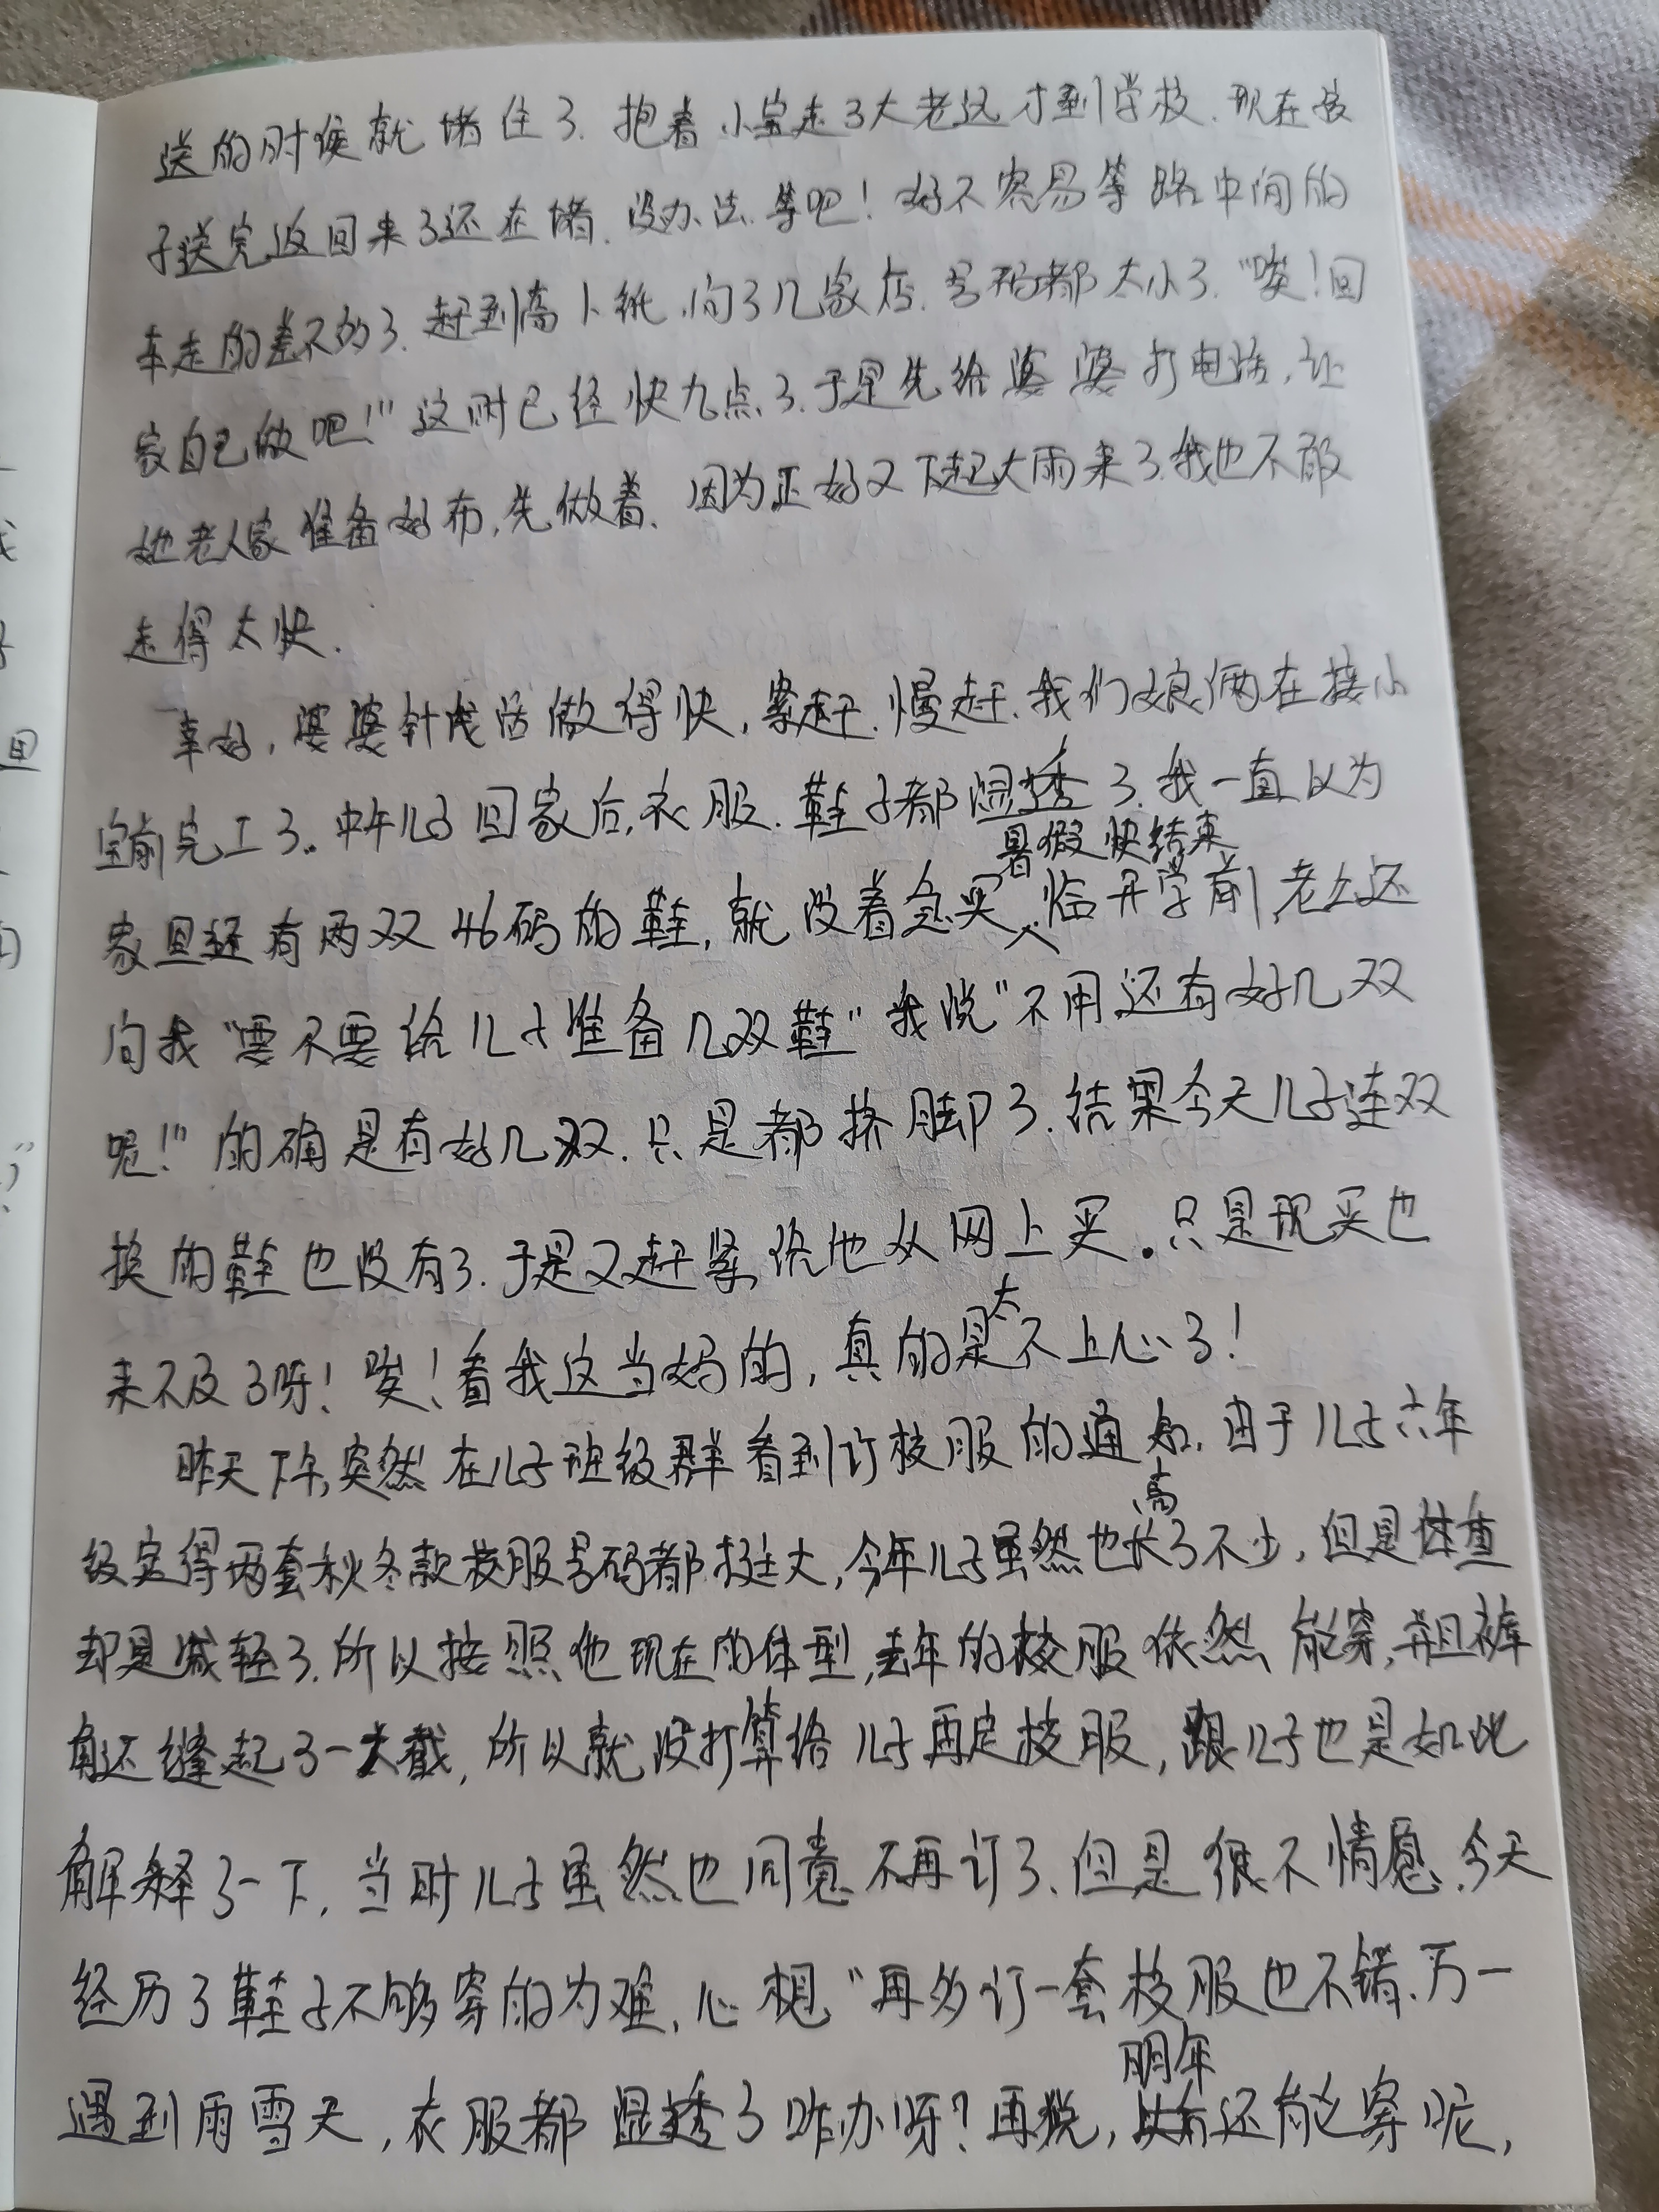 送的时候就堵住了.抱着小宝走了大老远才到学校.现在孩
子送完返回来了还在堵.没办法.等吧！好不容易等路中间的
车走的差不多了.赶到高卜纸,问了几家店.号码都太小了."唉！回
家自己做吧！"这时已经快九点了.于是先给婆婆打电话,让
她老人家准备好布,先做着.因为正好又下起大雨来了.我也不敢
走得太快.
幸好,婆婆针线活做得快,紧赶.慢赶.我们娘俩在接小
宝前完工了.中午儿子回家后,衣服.鞋子都湿透了.我一直以为
暑假快结束
家里还有两双46码的鞋,就没着急买,临开学前,老公还
问我"要不要给儿子准备几双鞋"我说"不用还有好几双
呢！"的确是有好几双.只是都挤脚了.结果今天儿子连双
换的鞋也没有了.于是又赶紧给他从网上买.只是现买也
太
来不及了呀！唉！看我这当妈的,真的是不上心了！
昨天下午,突然在儿子班级群看到订校服的通知.由于儿子六年
高
级定得两套秋冬款校服号码都挺大,今年儿子虽然也长了不少,但是体重
却是减轻了.所以按照他现在的体型,去年的校服依然能穿,并且裤
角还缝起了一大截,所以就没打算给儿子再定校服,跟儿子也是如此
解释了一下.当时儿子虽然也同意不再订了.但是很不情愿.今天
经历了鞋子不够穿的为难,心想"再多订一套校服也不错.万一
明年
遇到雨雪天,衣服都湿透了咋办呀？再说,还能穿呢,